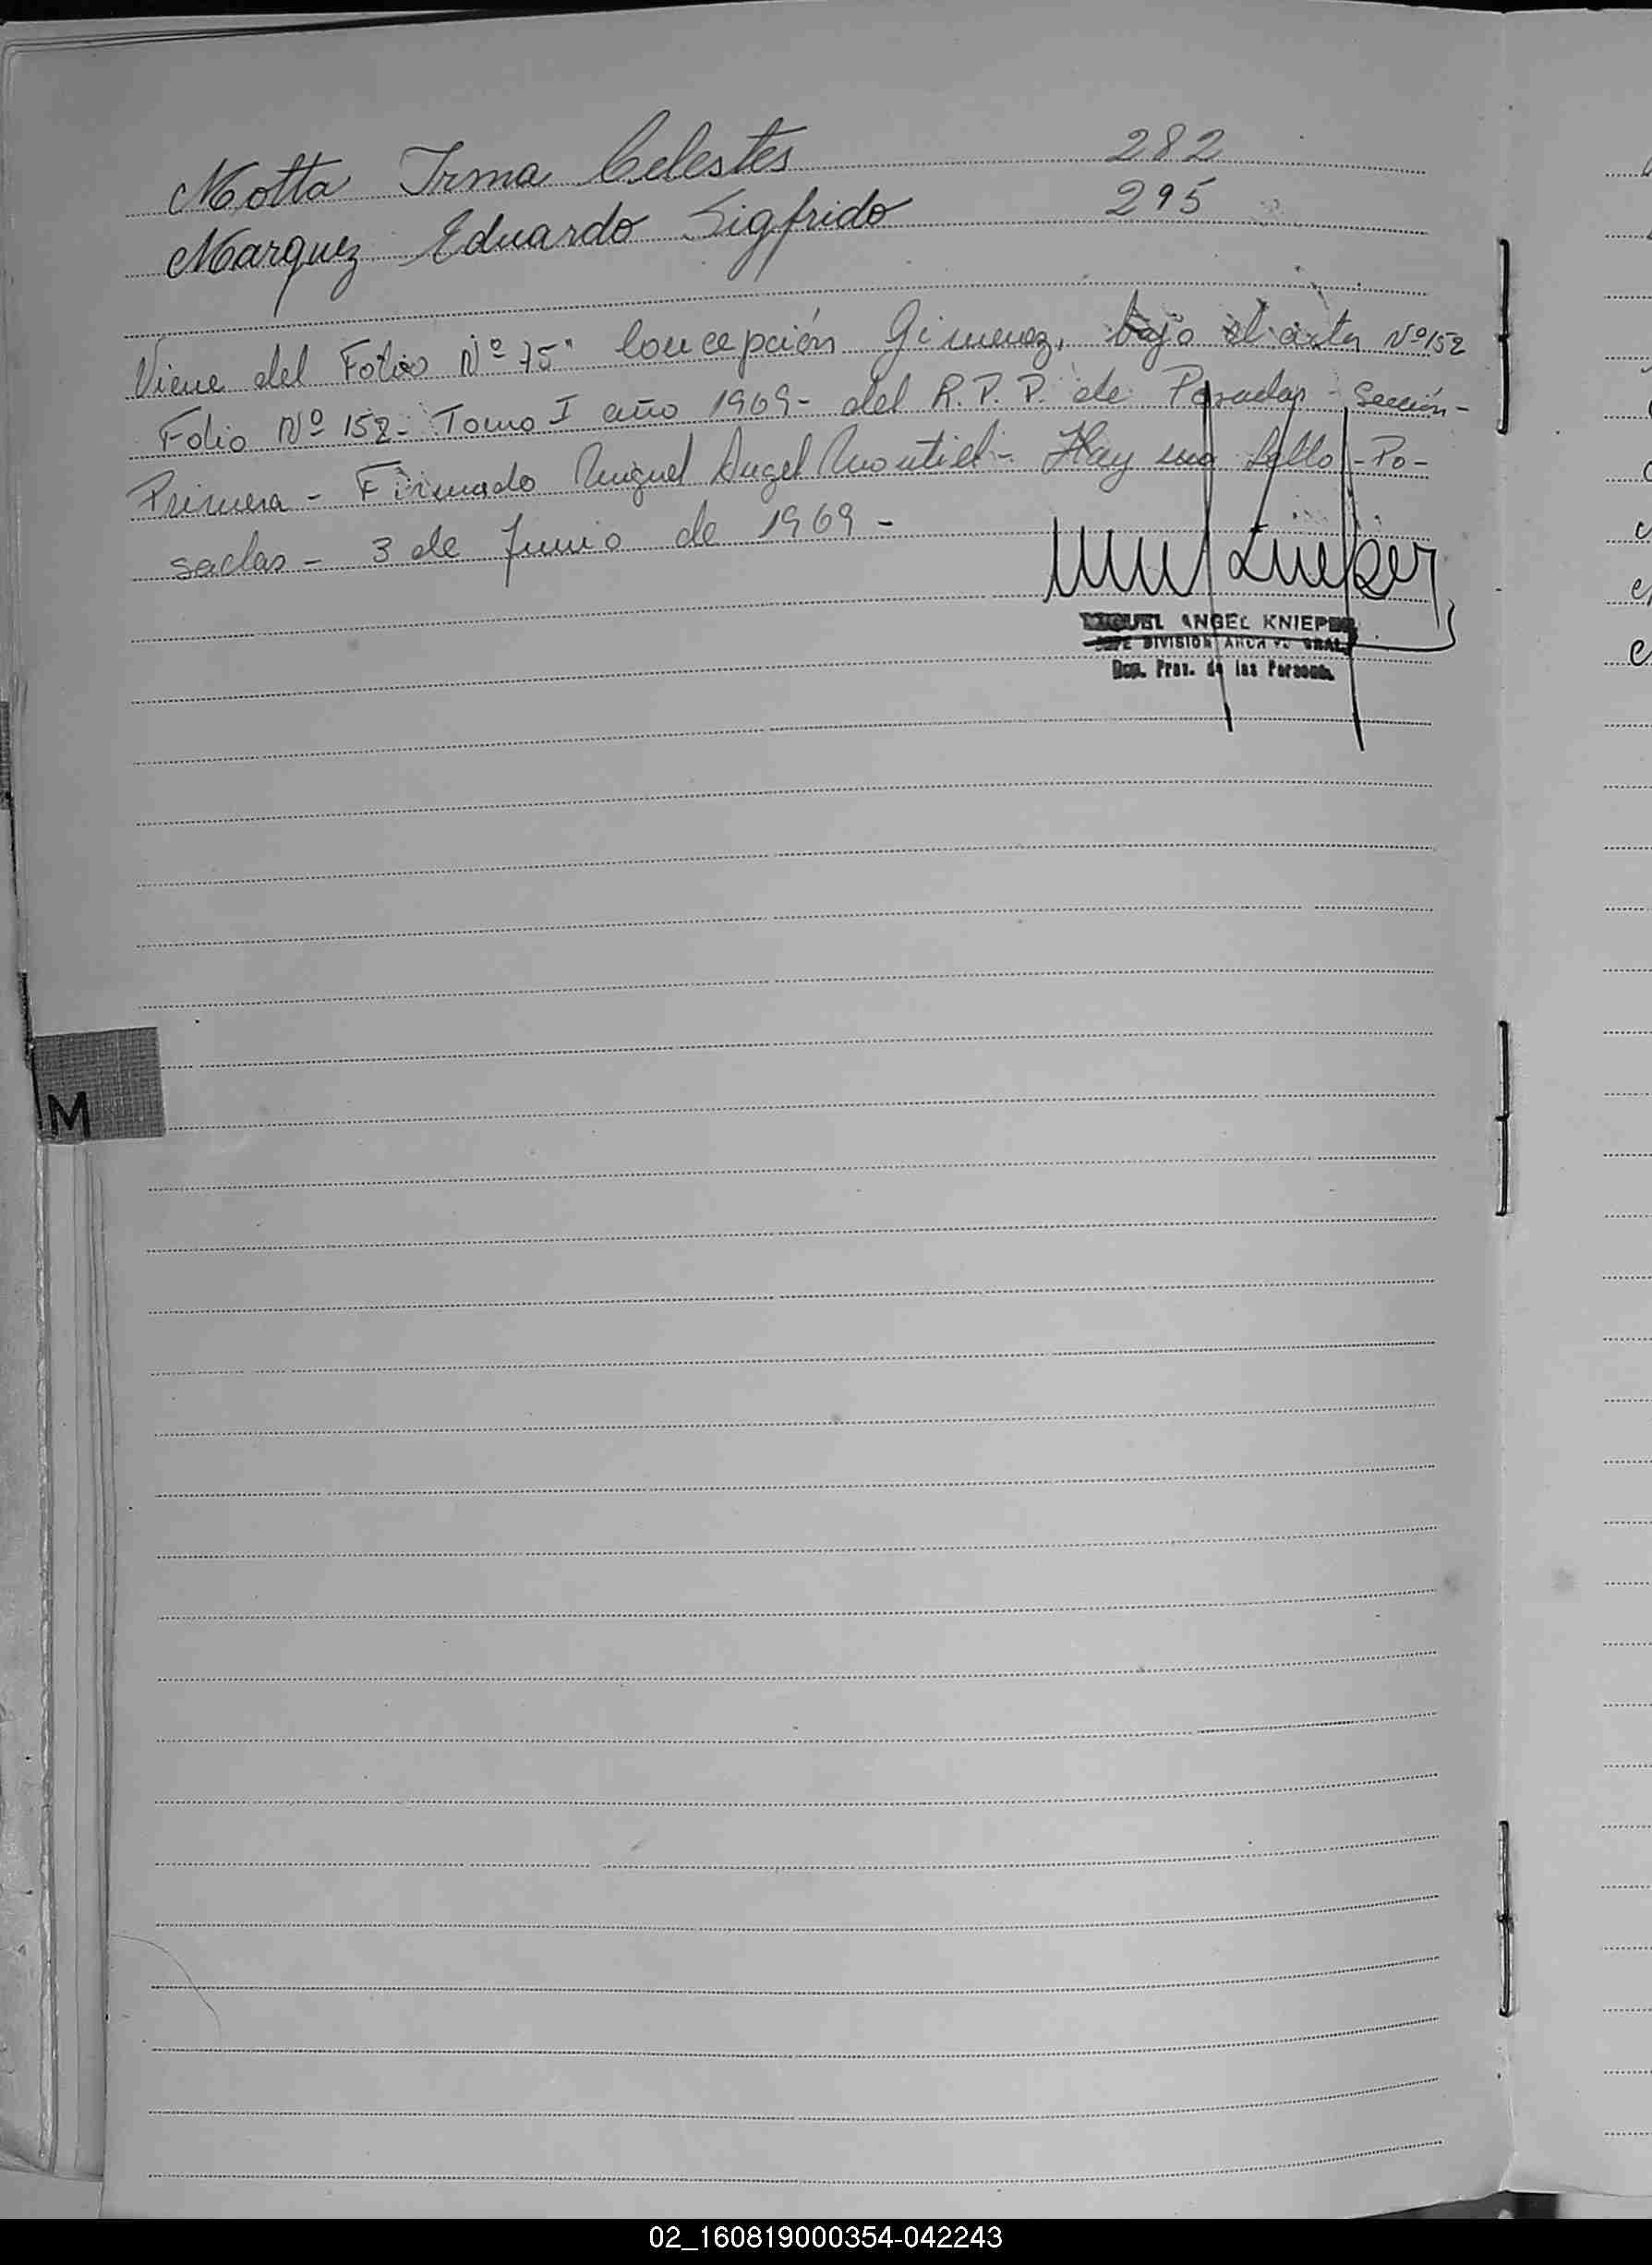 Motta Irma Celestes 282
Marquez Eduardo Sigfrido 295
Viene del Folio Nº 75" Concepción Gimenez, bajo el acta Nº 152
Folio Nº 152- Tomo I año 1969- del R.P.P. de Posadas - Sección-
Primera - Firmado Miguel Angel Montiel - Hay un Sello - Po-
sadas - 3 de Junio de 1969 -
MIGUEL ANGEL KNIEPER
JEFE DIVISION ARCHIVO GRAL.
Prov. de las Personas
M
02_160819000354-042243